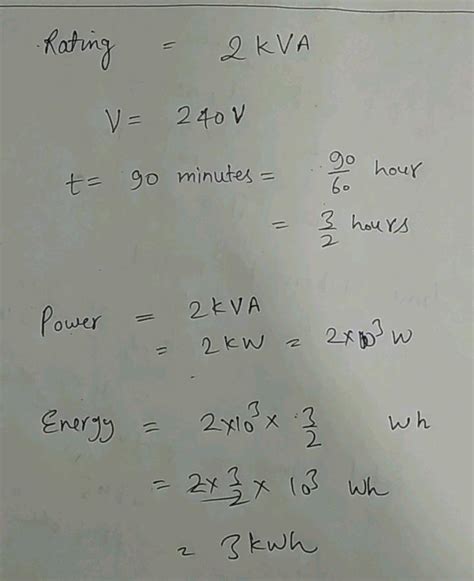 Rating = 2 kVA
V = 240 V
t = 90 minutes = 90/60 hour
= 3/2 hours
Power = 2 KVA
= 2 KW = 2×10³ W
Energy = 2×10³ × 3/2 Wh
= 2×3/2 × 10³ Wh
= 3 kWh